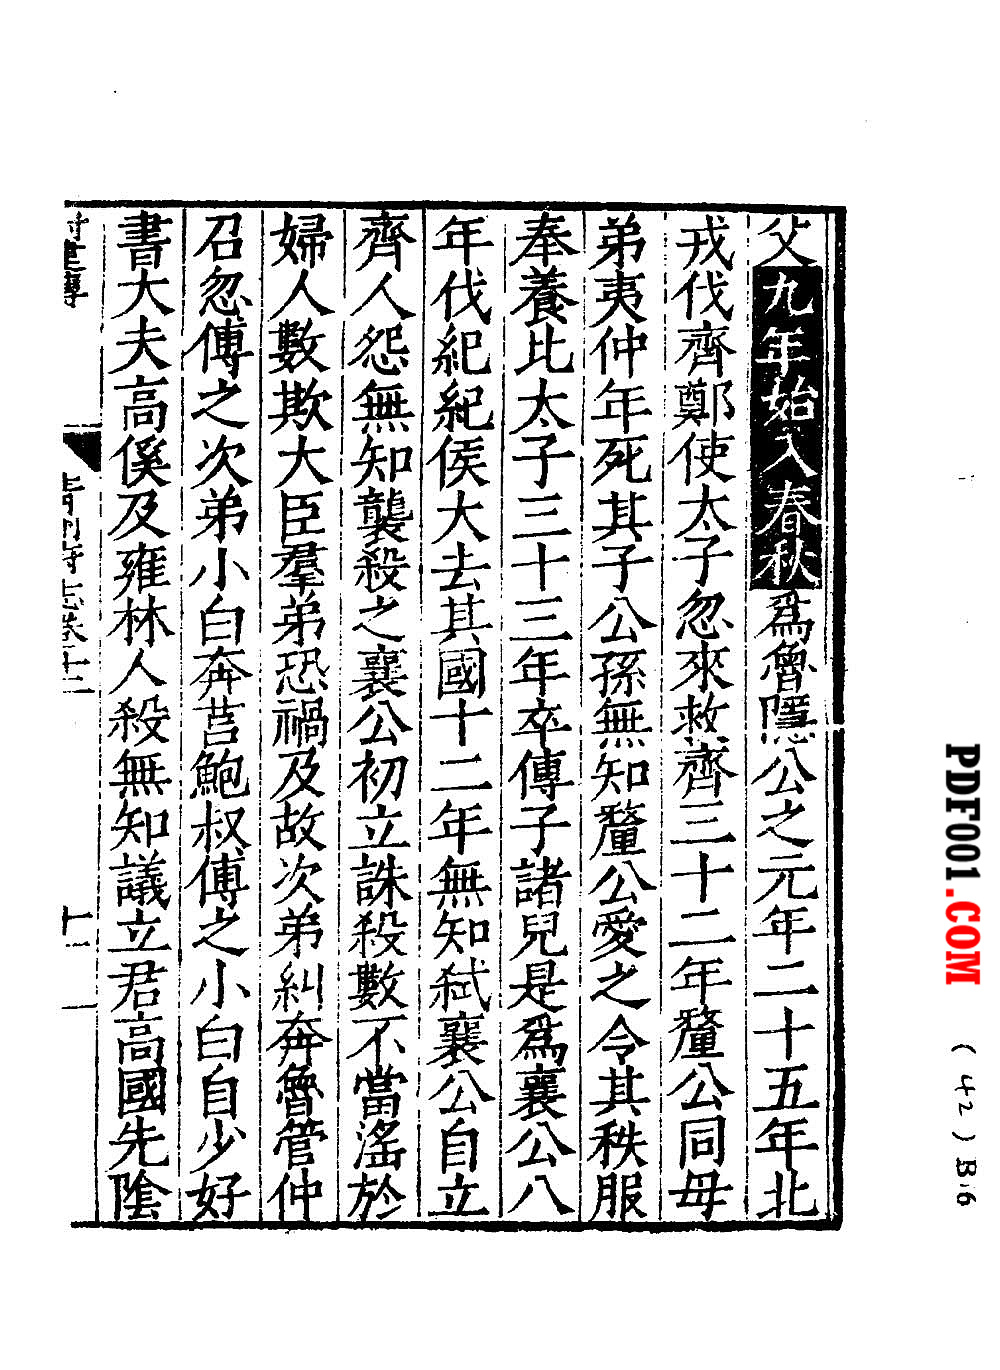 父九年始入春秋爲魯隱公之元年二十五年北
戎伐齊鄭使太子忽來救齊三十二年釐公同母
弟夷仲年死其子公孫無知釐公愛之令其秩服
奉養比太子三十三年卒傳子諸兒是爲襄公八
年伐紀紀侯大去其國十二年無知弑襄公自立
齊人怨無知襲殺之襄公初立誅殺數不當滛於
婦人數欺大臣羣弟恐禍及故次弟糾奔魯管仲
召忽傅之次弟小白奔莒鮑叔傅之小白自少好
書大夫高傒及雍林人殺無知議立君高國先陰
青州府志卷十二
十一
PDF001.COM
(42)B:6